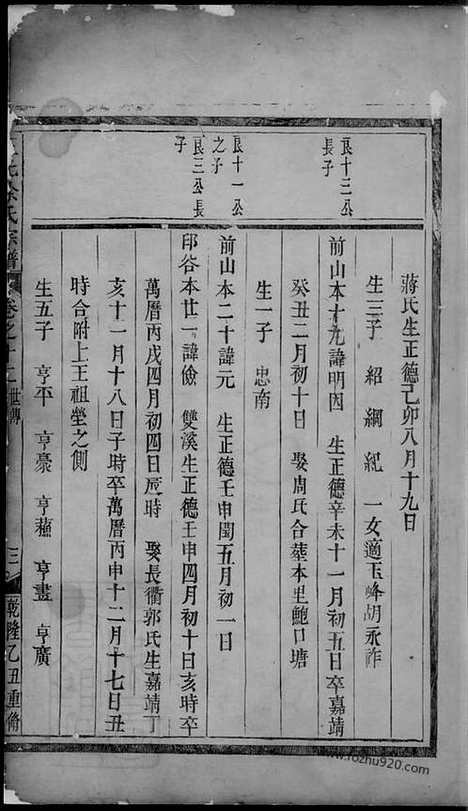 蔣氏生正德己卯八月十九日
生三子 紹綱紀 一女適玉峰胡永祚
良十三公長子
前山本十九諱明因 生正德辛未十一月初五日卒嘉靖
癸丑二月初十日 娶周氏合塟本里鮑口塘
生一子 忠南
良十一公之子
前山本二十諱元 生正德壬申閏五月初一日
良三公長子
邱谷本廿一諱儉 雙溪生正德壬申四月初十日亥時卒
萬曆丙戌四月初四日辰時 娶長衢郭氏生嘉靖丁
亥十一月十八日子時卒萬曆丙申十二月十七日丑
時合附上王祖塋之側
生五子 亨平 亨豪 亨蘓 亨畫 亨廣
氏宗譜 卷之十二 世傳 三 乾隆乙丑重脩
www.rozhu920.com